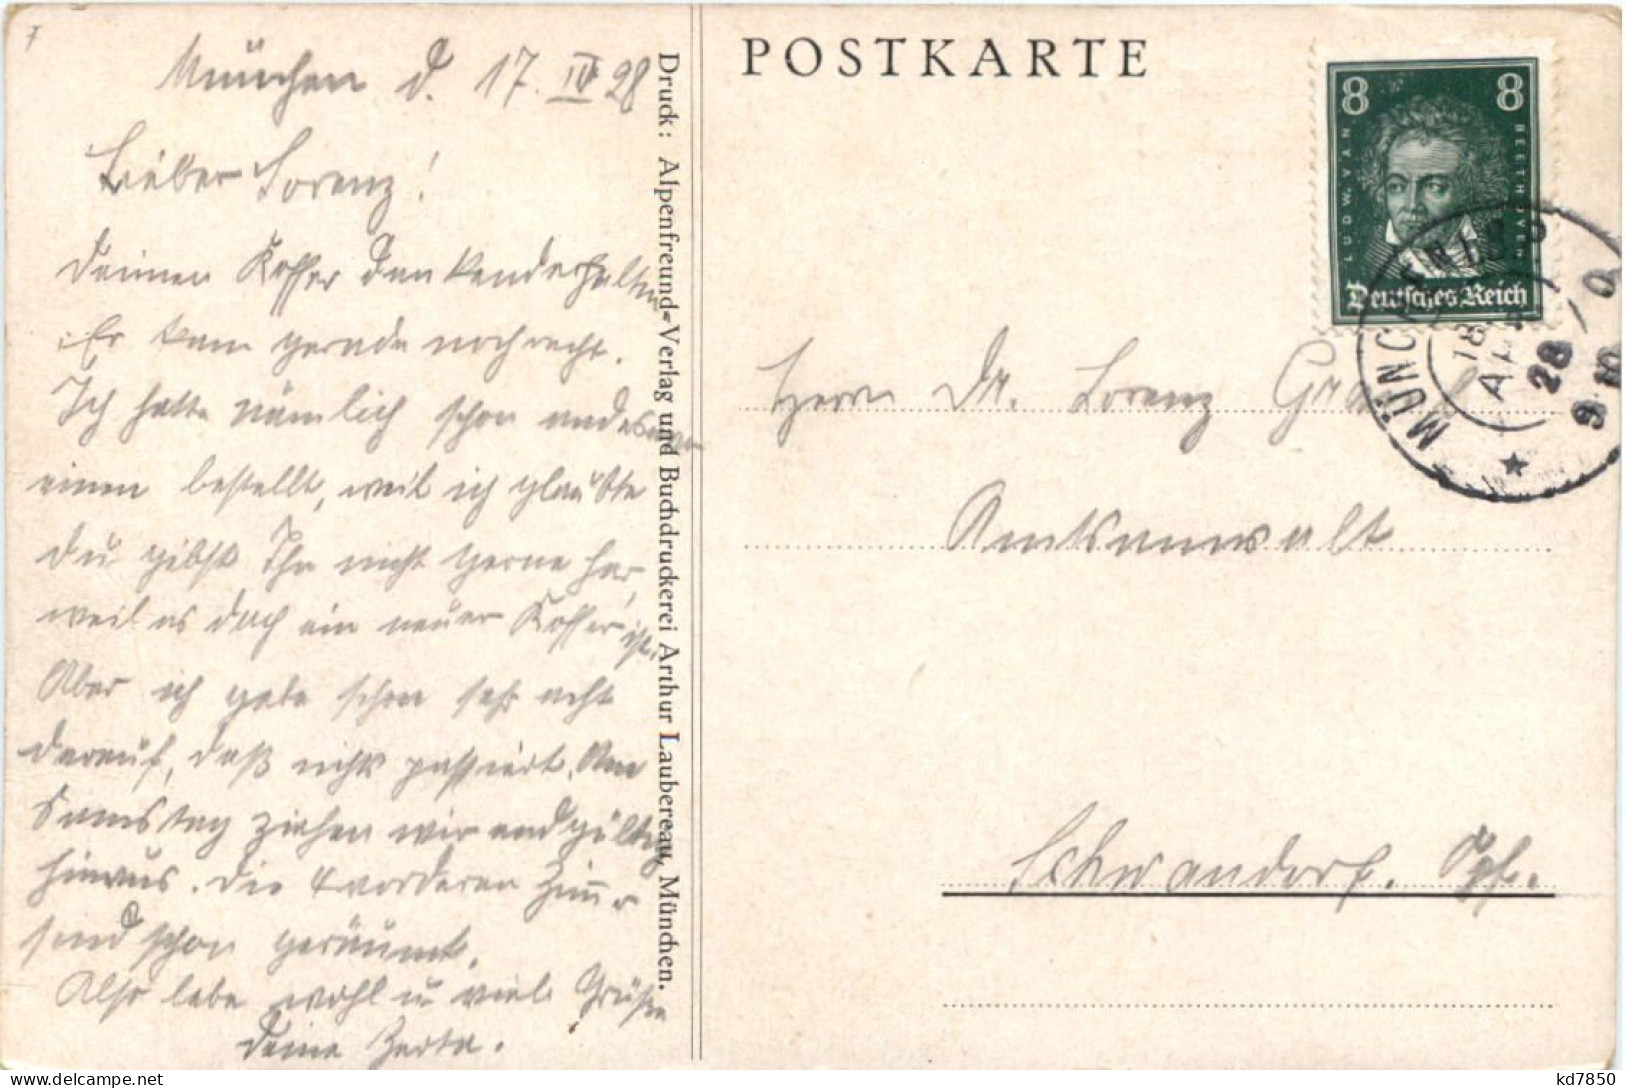 München d. 17. IV 28
Lieber Lorenz!
Deinen Koffer dankend erhalten
. Er kam gerade noch recht.
Ich hatte nämlich schon anderswo
einen bestellt, weil ich glaubte
Du gibst Ihn nicht gerne her,
weil es doch ein neuer Koffer ist.
Aber ich gebe schon sehr acht
darauf, daß nichts passiert. Am
Samstag ziehen wir endgültig
hinaus. Die 4 vorderen Zimmer
sind schon geräumt.
Also lebe wohl u. viele Grüße
Deine Berta.
Druck: Alpenfreund-Verlag und Buchdruckerei Arthur Laubereau, München.
POSTKARTE
8 8
LUDW. VAN BEETHOVEN
Deutsches Reich
MÜNCHEN
18 APR 28
9-10
Herrn Dr. Lorenz
Amtsanwalt
Schwandorf. Opf.
kd7850